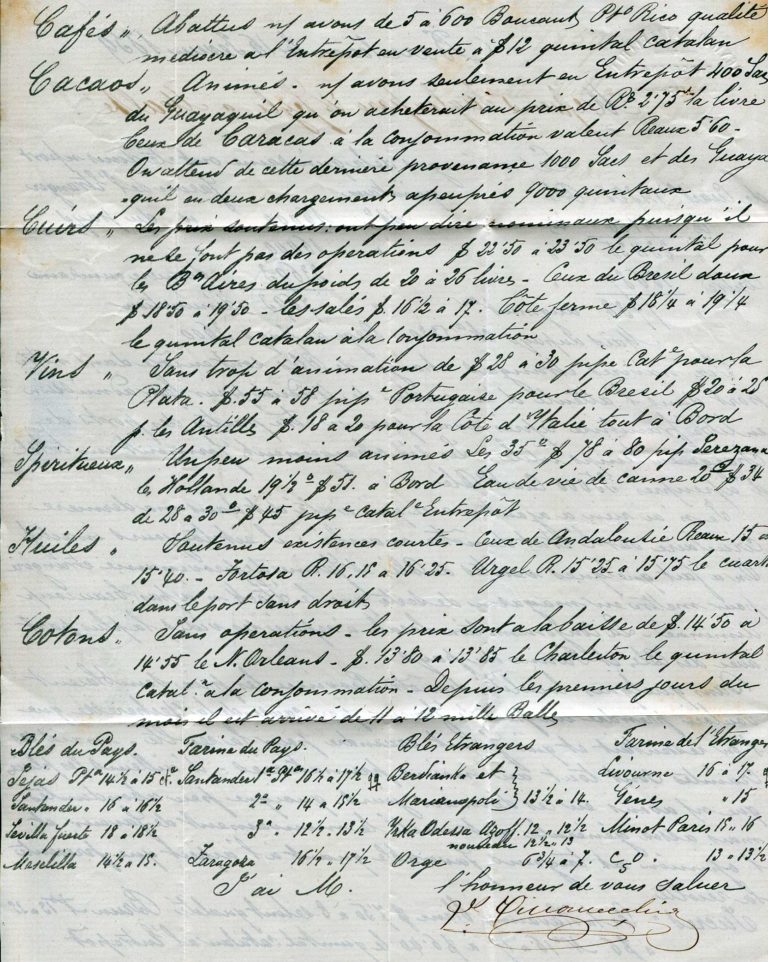 Cafés „ Abattus n/ avons de 5 à 600 Boucauts Pto Rico qualité
mediocre a l'Entrepôt en vente a $ 12 quintal catalan
Cacaos „ Animés - n/ avons seulement en Entrepôt 400 Sacs
du Guayaquil qu'on acheterait au prix de Rx 2'75 la livre
Ceux de Caracas à la consommation valent Reaux 5'60 -
On attend de cette dernière provenance 1000 Sacs et des Guaya
quil en deux chargements apeuprés 9000 quintaux
Cuirs „ Les prix soutenus: ont peu dire nominaux puisqu'il
ne se font pas des operations $ 22'50 à 23'50 le quintal pour
les Bs Aires du poids de 20 à 26 livres - Ceux du Bresil doux
$ 18'50 à 19'50 - les salés $. 16½ à 17. Côte ferme $ 18¼ à 19¼
le quintal catalan à la consommation
Vins „ Sans trop d'animation de $ 28 à 30 pipe Cate pour la
Plata. $. 55 à 58 pipe Portugaise pour le Bresil $ 20 à 25
p. les Antilles $. 18 a 20 pour la Côte d'Italie tout à Bord
Spiritueux „ Un peu moins animés Les 35o $ 78 à 80 pip Jerezana
les Hollande 19½o $ 51. à Bord Eau de vie de canne 20o $ 34
de 28 a 30o $ 45 pipe catale Entrepôt
Huiles „ Soutenus existences courtes - Ceux de Andalousie Reaux 15 a
15'40 - Tortosa R. 16,15 a 16'25. Urgel R. 15'25 à 15'75 le cuart
dans le port sans droits
Cotons „ Sans operations - les prix sont a la baisse de $. 14'50 à
14'55 le N. Orleans - $. 13'80 à 13'85 le Charleston le quintal
Catal.n a la consommation - Depuis les premiers jours du
mois il est arrivé de 11 à 12 mille Balles
Blés du Pays. Farine du Pays. Blés Etrangers Farine de l'Etranger
Jejas Pta 14½ à 15 Santander 1e Pta 16½ à 17½ Berdianka et Livourne 16 à 17.
Santander „ 16 à 16½ 2a „ 14 a 15½ Marianopoli 13½ à 14. Génes „ 15
Sevilla fuerte 18 à 18½ 3a „ 12½ - 13½ Yrka Odessa Azoff 12 „ 12½ Minot Paris 15 „ 16
nouveau 12½ „ 13
Mesclilla 14½ à 15. Zaragoza 16½ „ 17½ Orge 6¾ à 7. 13 „ 13½
J'ai M. l'honneur de vous saluer